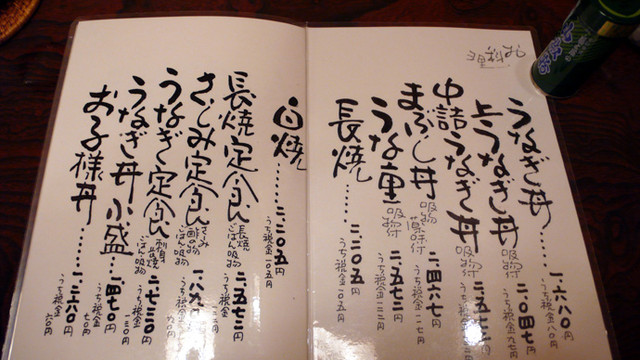 お料理
うなぎ丼……一、六八〇円
うち税金八〇円
上うなぎ丼 吸物付 二、〇四七円
うち税金九七円
中詰うなぎ丼 吸物付 二、五七二円
まぶし丼 吸物 薬味付 二、四六七円
うち税金一一七円
うな重 吸物付 二、五七二円
うち税金
長焼……二、二〇五円
うち税金一〇五円
白焼……二、二〇五円
うち税金一〇五円
長焼定食 長焼 ごはん 吸物 二、五七二円
うち税金
さしみ定食 さしみ 酢の物 ごはん 吸物
うち税金
うなぎ定食 刺身 長焼 ごはん 吸物 二、七三〇円
うち税金一三〇円
うなぎ丼小盛……一、四七〇円
うち税金七〇円
お子様丼……一、二六〇円
うち税金六〇円